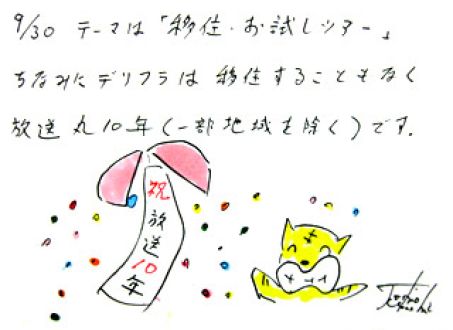 9/30 テーマは「移住・お試しツアー」
ちなみにデリフラは移住することもなく
放送丸10年(一部地域を除く)です.
祝
放
送
10
年